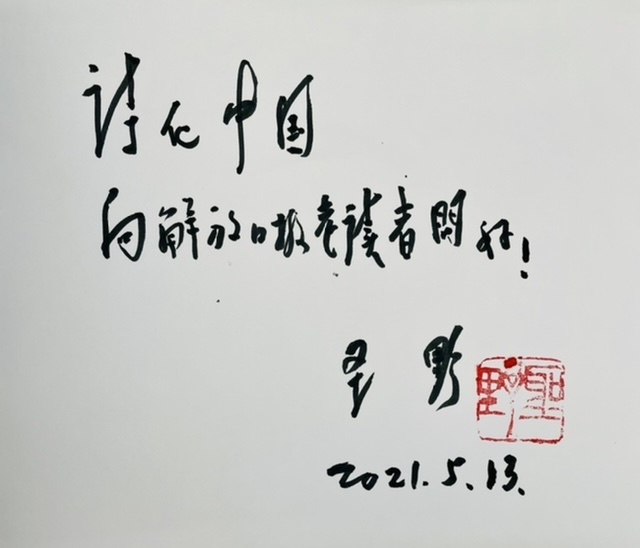 诗化中国
向解放日报老读者问好！
圣野
圣野
2021.5.13.